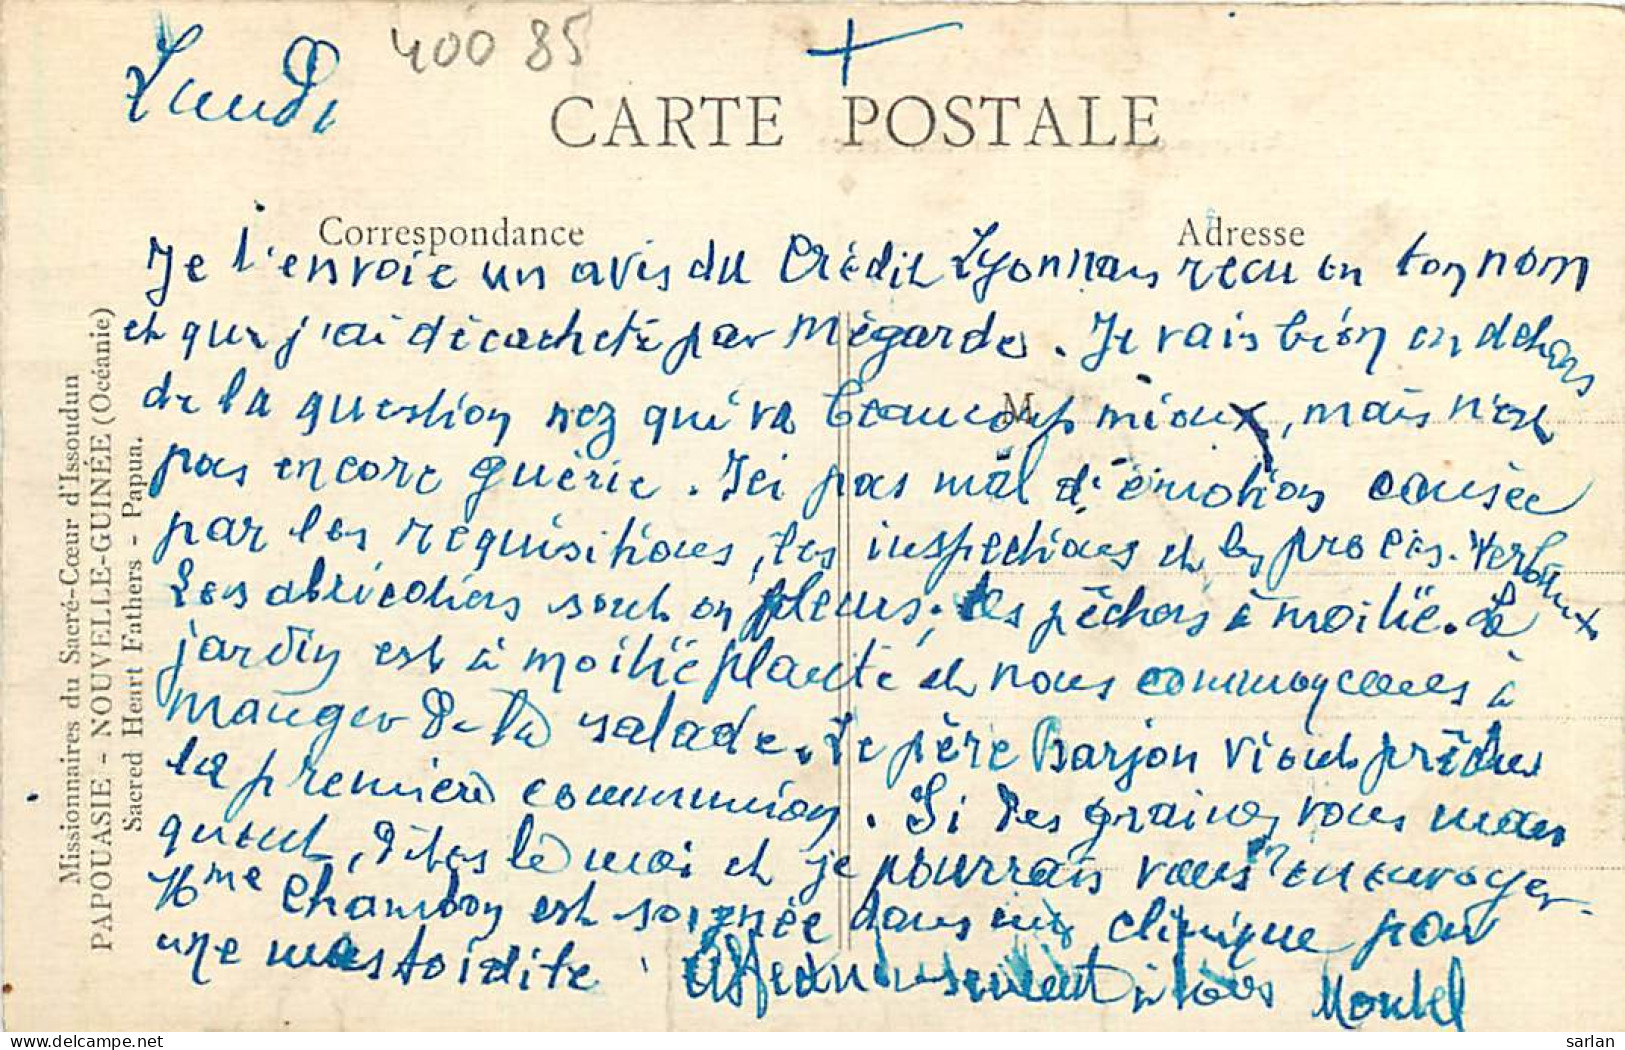 Lundi
400 85
CARTE POSTALE
Correspondance
Adresse
M
Je t'envoie un avis du Crédit Lyonnais recu en ton nom
et que j'ai décacheté par mégarde. Je vais bien en dehors
de la question nez qui va beaucoup mieux, mais n'est
pas encore guérie. Ici pas mal d'émotion causée
par les réquisitions, les inspections et les procès-verbaux
Les abricotiers sont en fleurs, les pêchers à moitié. Le
jardin est à moitié planté et nous commençons à
manger de la salade. Le père Barjon vient prêcher
la première communion. Si des graines vous man
quent, dites le moi et je pourrais vous en envoyer.
Mme Chambon est soignée dans une clinique pour
une mastoidite. Affectueusement à tous
Missionnaires du Sacré-Cœur d'Issoudun
PAPOUASIE - NOUVELLE-GUINÉE (Océanie)
Sacred Heart Fathers - Papua.
sarlan